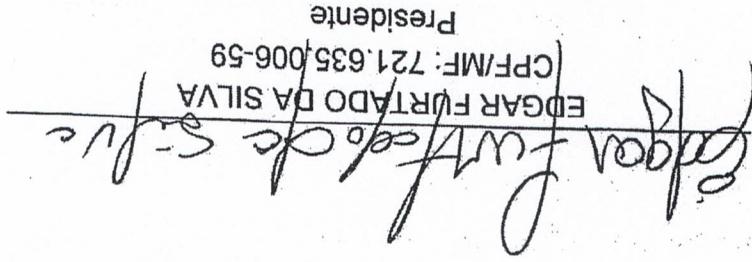 Edgar Furtado da Silva
EDGAR FURTADO DA SILVA
CPF/MF: 721.635.006-59
Presidente